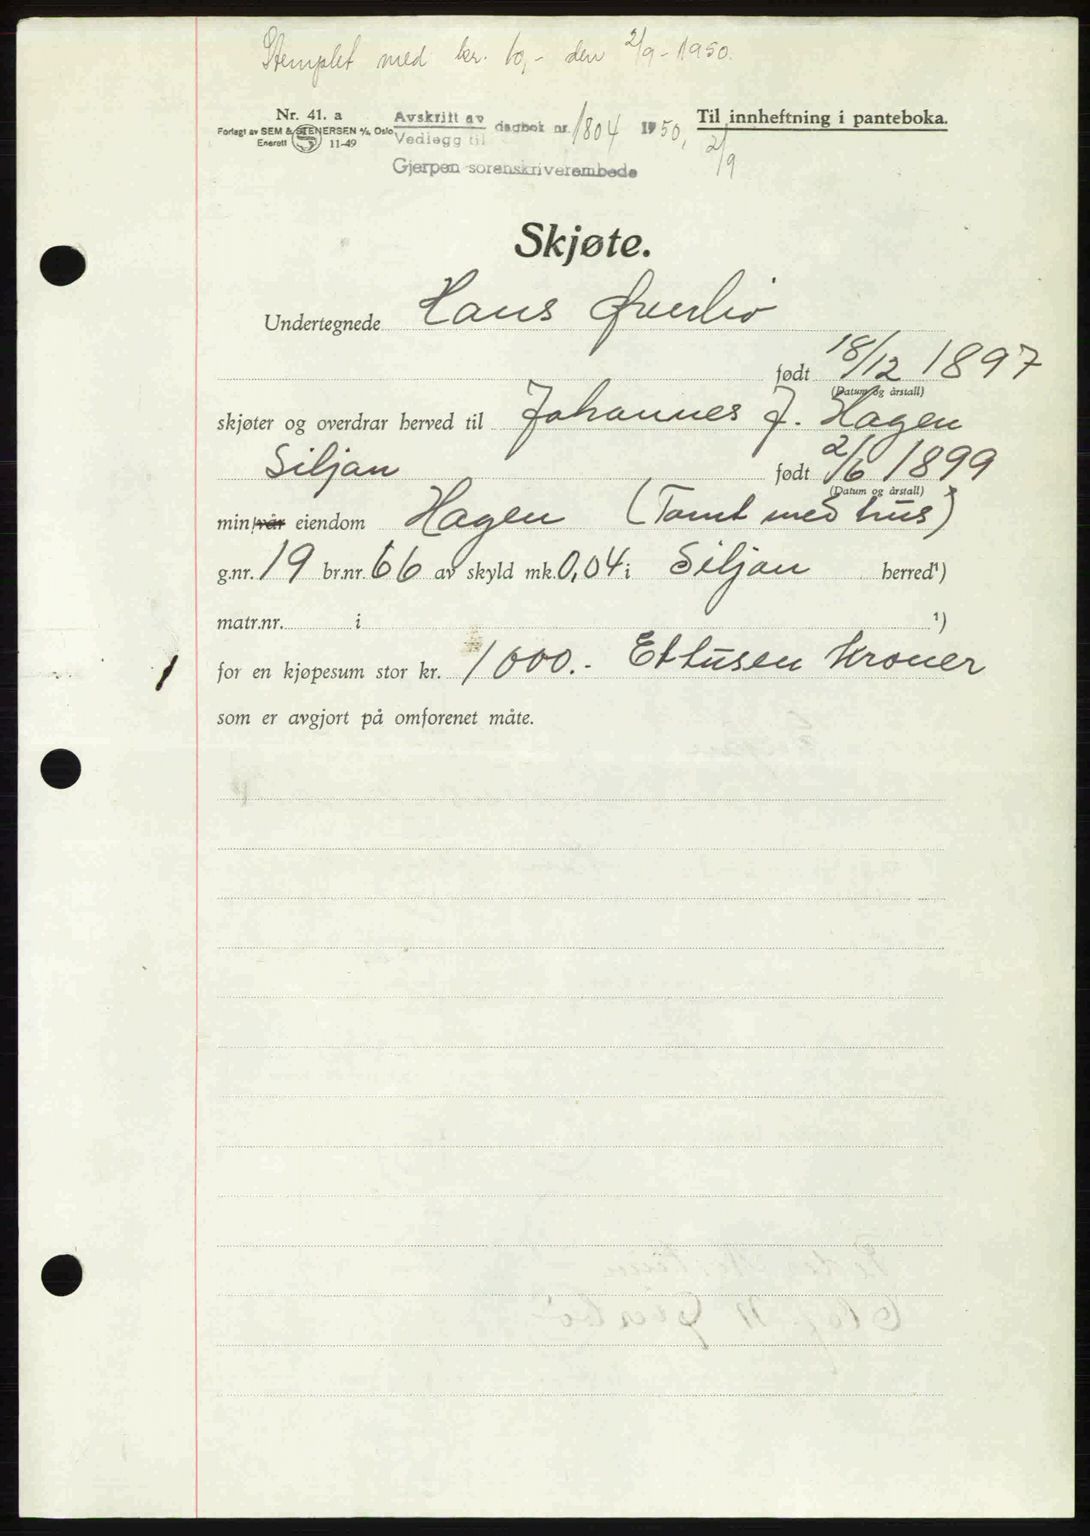 Stemplet med kr. 10,- den 2/9-1950.
Nr. 41. a
Forlagt av SEM & STENERSEN A/S, Oslo
Enerett 11-49
Avskrift av
Vedlegg til
dagbok nr. 1804 1950, 2/9
Gjerpen sorenskriverembede
Til innheftning i panteboka.
Skjøte.
Undertegnede Hans Øverbø
født 18/12 1897
(Datum og årstall)
skjøter og overdrar herved til Johannes J. Hagen
Siljan født 2/6 1899
(Datum og årstall)
min/vår eiendom Hagen (Tomt med hus)
g.nr. 19 br.nr. 66 av skyld mk. 0,04 i Siljan herred¹)
matr.nr. i ¹)
for en kjøpesum stor kr. 1000.- Ettusen Kroner
som er avgjort på omforenet måte.